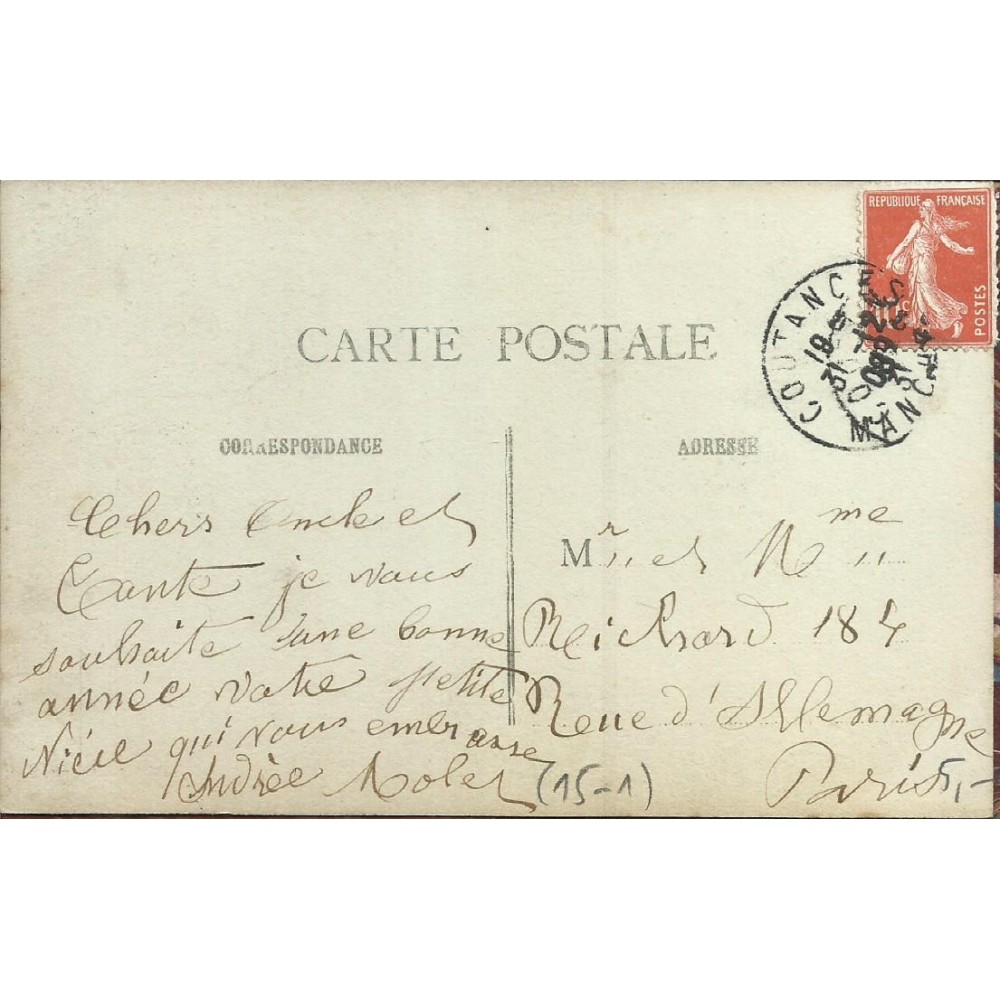 REPUBLIQUE FRANÇAISE
POSTES
COUTANCES
MANCHE
CARTE POSTALE
CORRESPONDANCE
Chers Oncle et
Tante je vous
souhaite une bonne
année votre petite
Nièce qui vous embrasse
Andrée Molet
ADRESSE
Mr et Mme
Reichard 184
Rue d'Allemagne
Paris
(15-1)
5,-